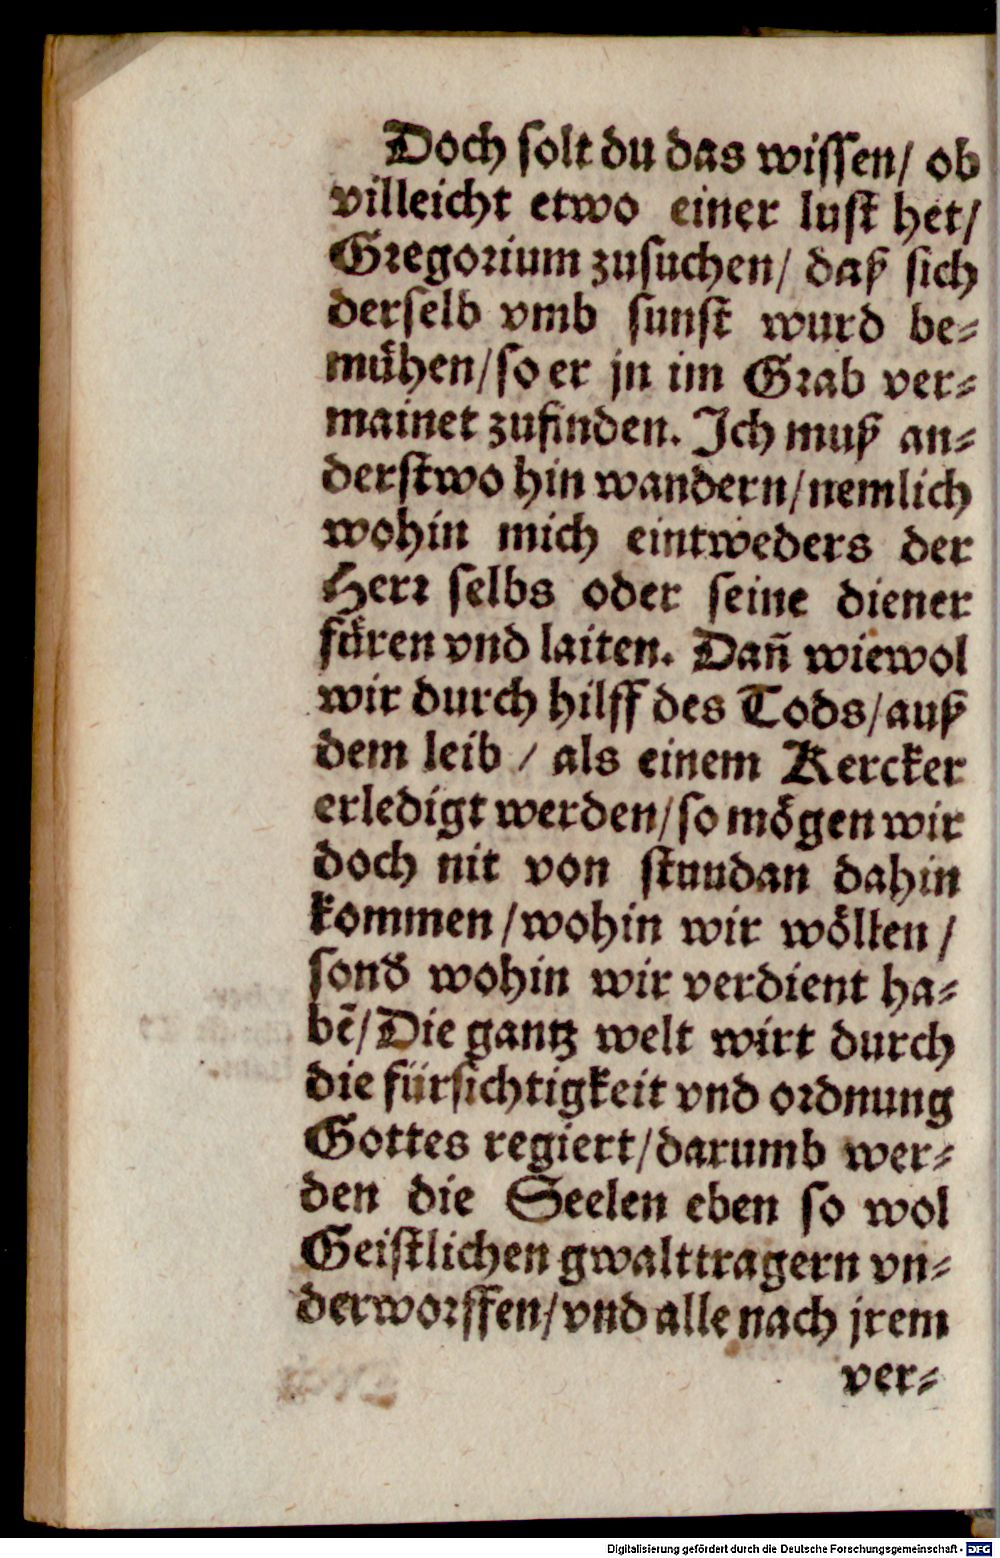 Doch solt du das wissen/ ob
villeicht etwo einer lust het/
Gregorium zusuchen/ daß sich
derselb vmb sunst wurd be-
mühen/so er jn im Grab ver-
mainet zufinden. Ich muß an-
derstwo hin wandern/nemlich
wohin mich eintweders der
Herr selbs oder seine diener
füren vnd laiten. Dañ wiewol
wir durch hilff des Tods/auß
dem leib / als einem Kercker
erledigt werden/so mögen wir
doch nit von stundan dahin
kommen /wohin wir wöllen /
sond̄ wohin wir verdient ha-
bē/Die gantz welt wirt durch
die fürsichtigkeit vnd ordnung
Gottes regiert/darumb wer-
den die Seelen eben so wol
Geistlichen gwalttragern vn-
derworffen/vnd alle nach jrem
ver-
Digitalisierung gefördert durch die Deutsche Forschungsgemeinschaft - DFG